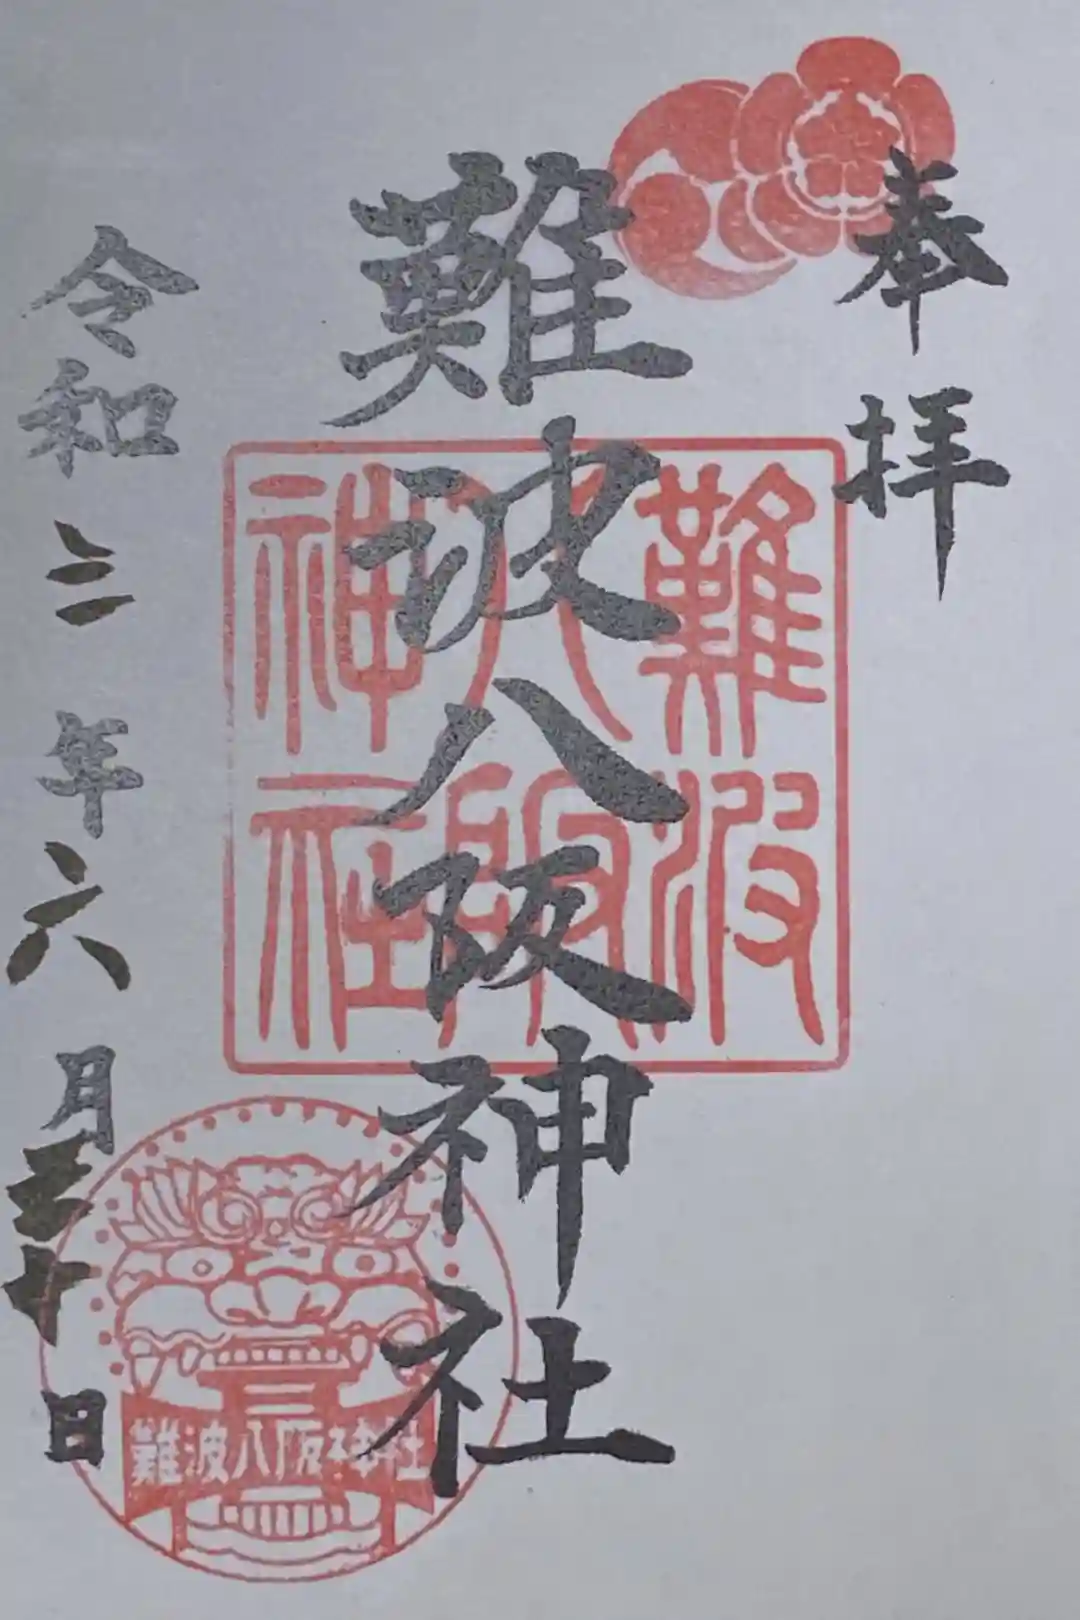 奉拝
難波八阪神社
難波
八阪
神社
令和二年六月三十日
難波八阪神社